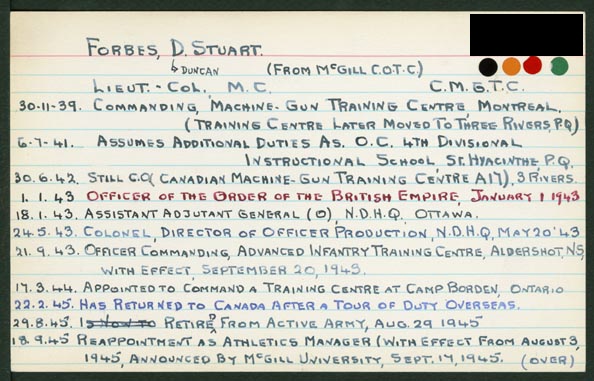 FORBES, D. STUART.
↳ DUNCAN (FROM McGILL C.O.T.C.)
LIEUT.- COL, M.C. C.M.G.T.C.
30-11-39. COMMANDING, MACHINE-GUN TRAINING CENTRE, MONTREAL.
(TRAINING CENTRE LATER MOVED TO THREE RIVERS, P.Q)
6-7-41. ASSUMES ADDITIONAL DUTIES AS. O.C. 4TH DIVISIONAL
INSTRUCTIONAL SCHOOL, ST. HYACINTHE, P.Q.
30.6.42. STILL C.O( CANADIAN MACHINE-GUN TRAINING CENTRE A17), 3 RIVERS.
1. 1. 43 OFFICER OF THE ORDER OF THE BRITISH EMPIRE, JANUARY 1 1943
18.1.43. ASSISTANT ADJUTANT GENERAL (O), N.D.H.Q. OTTAWA.
24.5.43. COLONEL, DIRECTOR OF OFFICER PRODUCTION, N.D.H.Q, MAY 20'43
21.9.43. OFFICER COMMANDING, ADVANCED INFANTRY TRAINING CENTRE, ALDERSHOT, NS,
WITH EFFECT, SEPTEMBER 20, 1943.
17.3.44. APPOINTED TO COMMAND A TRAINING CENTRE AT CAMP BORDEN, ONTARIO
22.2.45. HAS RETURNED TO CANADA AFTER A TOUR OF DUTY OVERSEAS.
29.8.45. IS NOW TO RETIRED FROM ACTIVE ARMY, AUG. 29 1945
18.9.45 REAPPOINTMENT AS ATHLETICS MANAGER (WITH EFFECT FROM AUGUST 3,
1945, ANNOUNCED BY McGILL UNIVERSITY, SEPT. 17, 1945. (OVER)